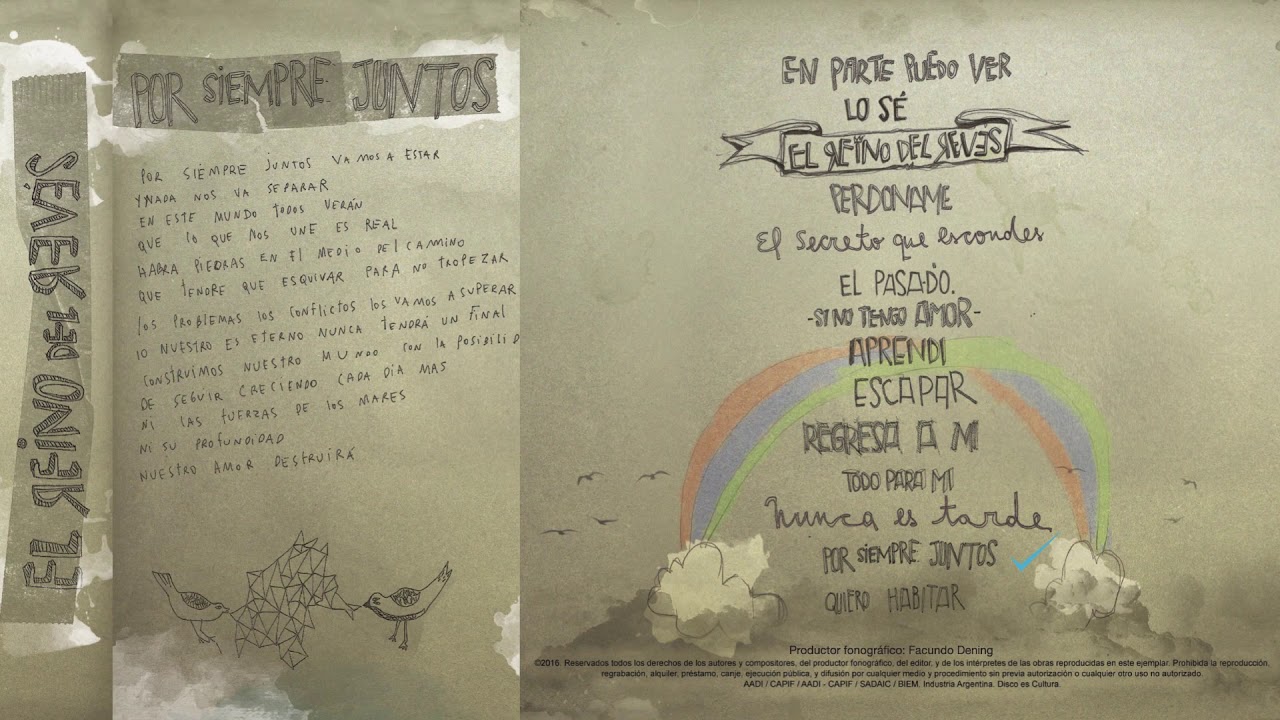 EL REINO DEL REVÉS
POR SIEMPRE JUNTOS
POR SIEMPRE JUNTOS VAMOS A ESTAR
Y NADA NOS VA SEPARAR
EN ESTE MUNDO TODOS VERÁN
QUE LO QUE NOS UNE ES REAL
HABRA PIEDRAS EN El MEDIO DEl CAMINO
QUE TENDRE QUE ESQUIVAR PARA NO TROPEZAR
LOS PROBLEMAS LOS CONFLICTOS LOS VAMOS A SUPERAR
LO NUESTRO ES ETERNO NUNCA TENDRÁ UN FINAL
CONSTRUIMOS NUESTRO MUNDO CON LA POSIBILID
DE SEGUIR CRECIENDO CADA DIA MAS
NI LAS FUERZAS DE LOS MARES
NI SU PROFUNDIDAD
NUESTRO AMOR DESTRUIRÁ
EN PARTE PUEDO VER
LO SÉ
EL REINO DEL REVES
PERDONAME
El Secreto que escondes
EL PASADO.
-SI NO TENGO AMOR-
APRENDI
ESCAPAR
REGRESA A MI
TODO PARA MI
Nunca es tarde
POR SIEMPRE JUNTOS
QUIERO HABITAR
Productor fonográfico: Facundo Dening
©2016. Reservados todos los derechos de los autores y compositores, del productor fonográfico, del editor, y de los intérpretes de las obras reproducidas en este ejemplar. Prohibida la reproducción,
regrabación, alquiler, préstamo, canje, ejecución pública, y difusión por cualquier medio y procedimiento sin previa autorización o cualquier otro uso no autorizado.
AADI / CAPIF / AADI - CAPIF / SADAIC / BIEM. Industria Argentina. Disco es Cultura.